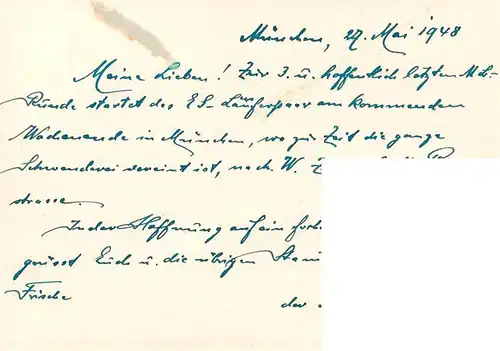 München, 27. Mai 1948
Meine Lieben! Zur 3. u. hoffentlich letzten
Runde startet das ES- Läuferpaar am kommenden
Wochenende in München, wo zur Zeit die ganze
vereint ist, nach W.
strasse.
In der Hoffnung auf ein
grüsst Euch u. die übrigen
Frische
der